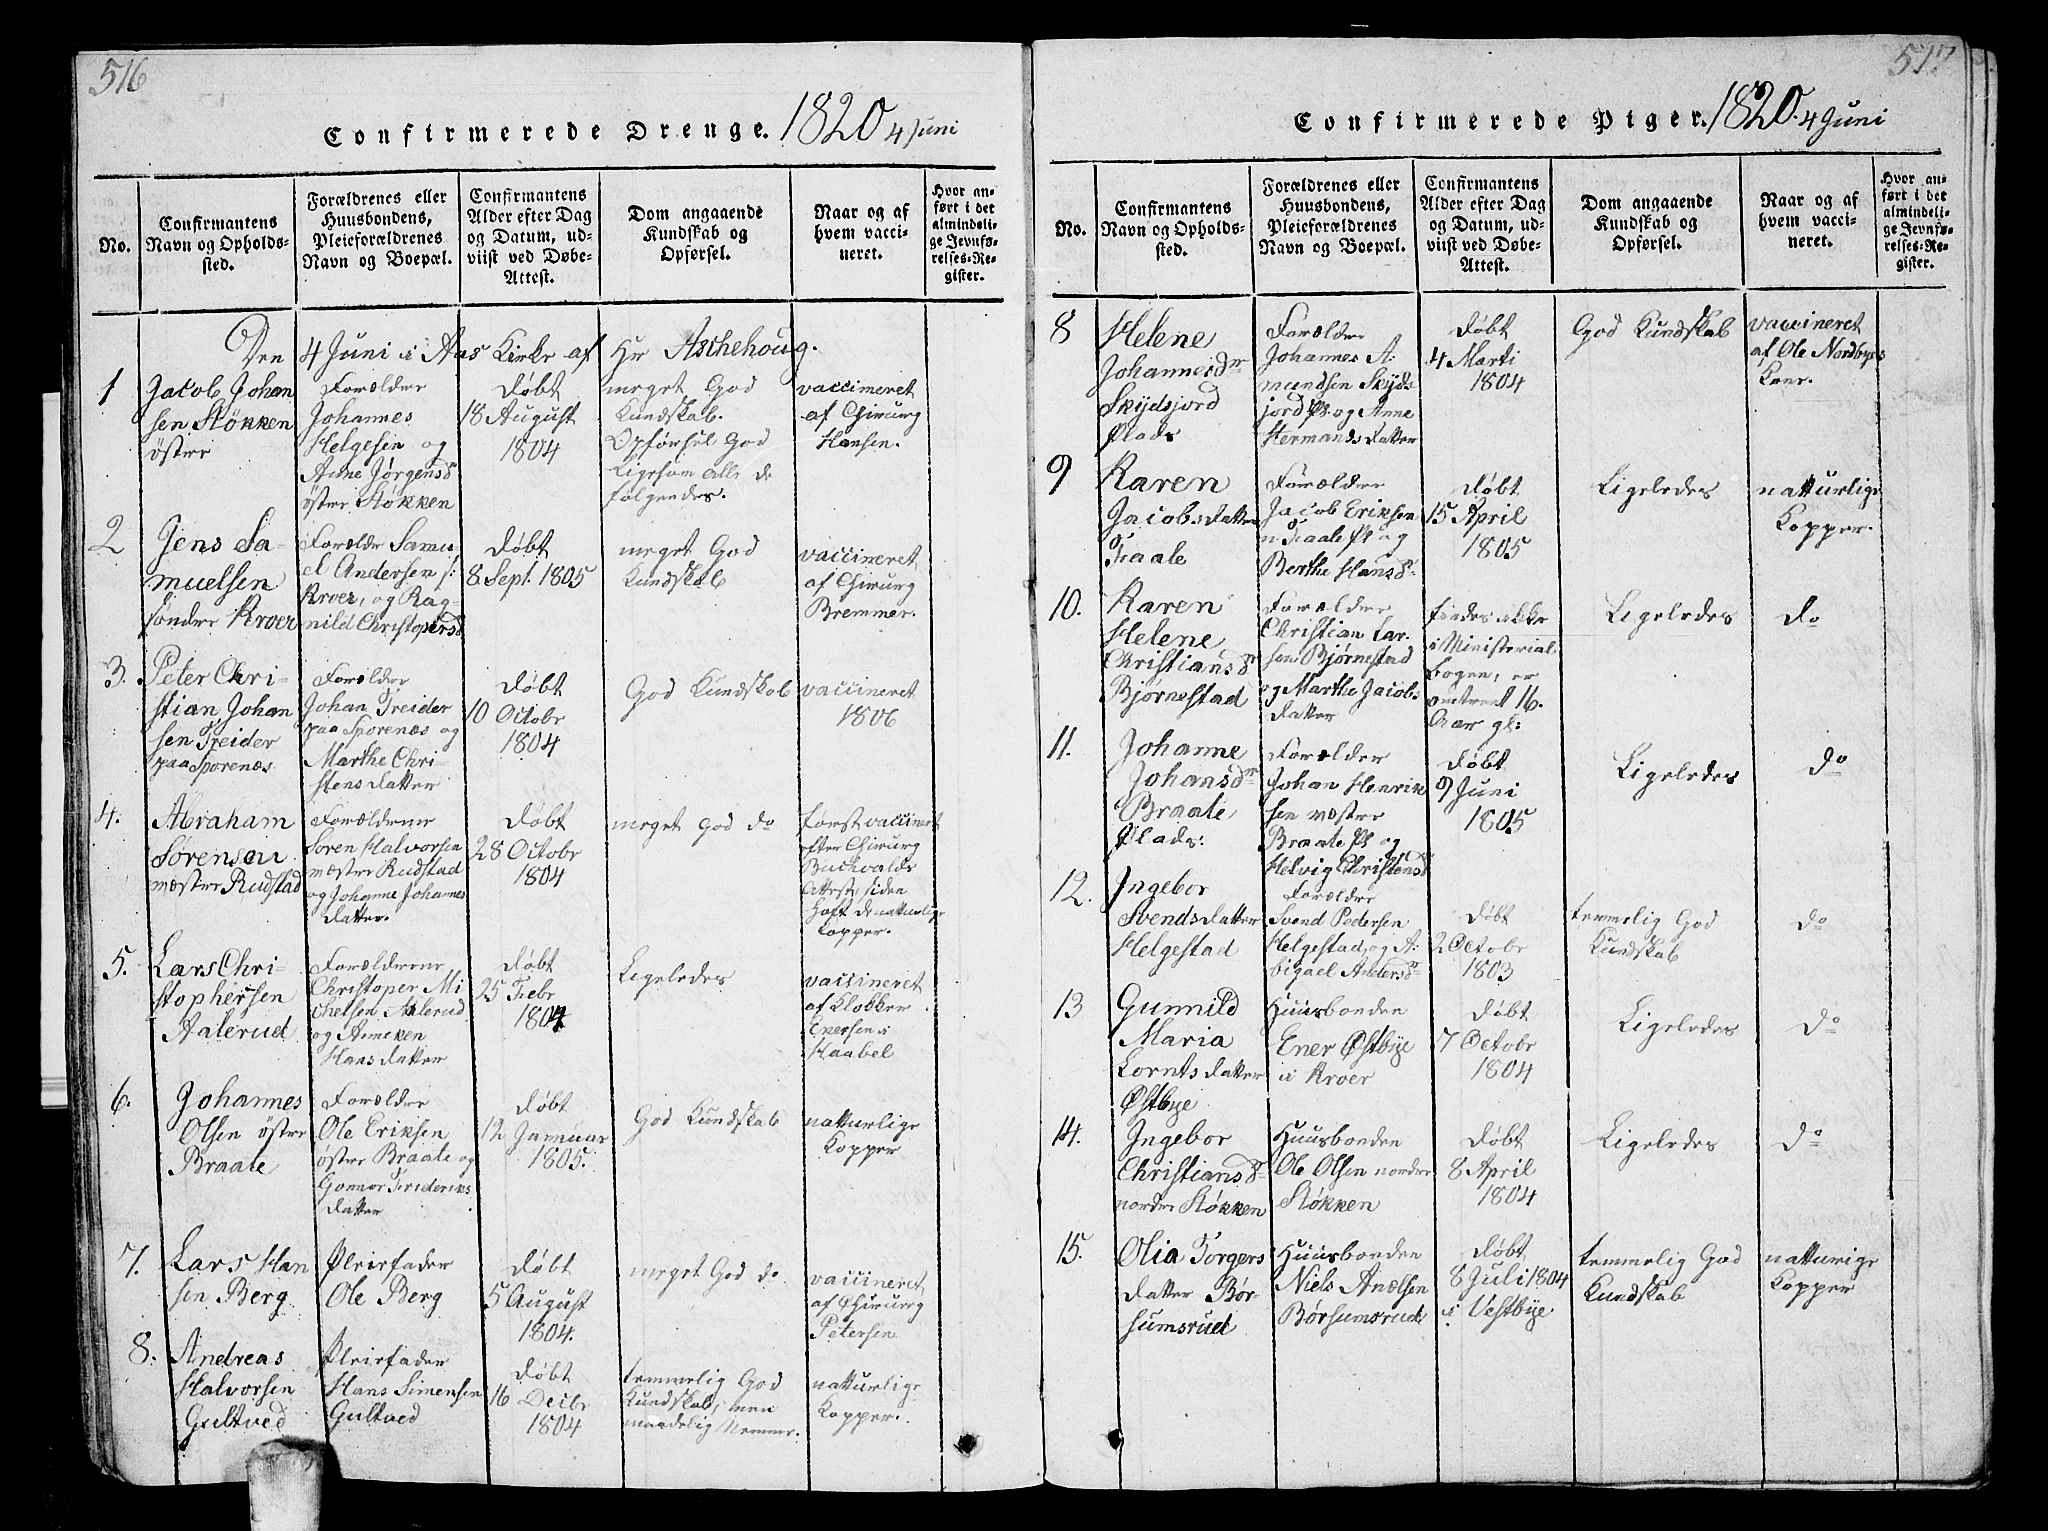 516
Confirmerede Drenge. 1820 4 Juni
No.
Confirmantens
Navn og Opholds-
sted.
Forældrenes eller
Huusbondens,
Pleieforældrenes
Navn og Boepæl.
Confirmantens
Alder efter Dag
og Datum, ud-
viist ved Døbe-
Attest.
Dom angaaende
Kundskab og
Opførsel.
Naar og af
hvem vacci-
neret.
Hvor an-
ført i det
almindeli-
ge Jevnfø-
relses-Re-
gister.
Den 4 Juni i Aas Kirke af Hr Aschehoug.
1
Jacob Johan
sen Støkken
østre
Forældre
Johannes
Helgesen og
Anne Jørgensdr
østre Støkken
døbt
18 August
1804
meget God
Kundskab.
Opførsel God
Ligesom alle de
følgendes.
vaccineret
af Chirurg
Hansen.
2
Jens Sa-
muelsen
søndre Kroer
Forældre Samu-
el Andersen s:
Kroer, og Rag-
nild Christophersdr
døbt
8 Sept. 1805
meget God
Kundskab
vaccineret
af Chirurg
Bremmer.
3.
Peter Chri-
stian Johan
sen Treider
paa Sporenæs
Forældre
Johan Treider
paa Sporenæs og
Marthe Chri-
stensdatter
døbt
10 Octobr
1804
God Kundskab
vaccineret
1806
4.
Abraham
Sørensen
mæstre Rudstad
Forældrene
Søren Halvorsen
mæstre Rudstad
og Johanne Johannes
datter.
døbt
28 Octobr
1804
meget god do
først vaccineret
efter Chirurg
Buchvalds
Attest, siden
haft de natturlige
Kopper.
5.
Lars Chri-
stophersen
Aalerud
Forældrene
Christopher Mi
chelsen Aalerud
og Anneken
Hansdatter
døbt
25 Febr
1804
Ligeledes
vaccineret
af Klokker
Enersen i
Haabel
6.
Johannes
Olsen østre
Braate
Forældre
Ole Eriksen
østre Braate og
Gonnor Frideriks
datter
døbt
12 Januar
1805.
God Kundskab
natturlige
Kopper
7.
Lars Han
sen Berg
Pleiefader
Ole Berg
døbt
5 August
1804.
meget God do
vaccineret
af Chirurg
Petersen
8.
Andreas
Halvorsen
Gultved
Pleiefader
Hans Simensen
Gultved
døbt
16 Decbr
1804
temmelig God
Kundskab, men
maadelig Nemme.
natturlige
Kopper.
517
Confirmerede Piger. 1820. 4 Juni
No.
Confirmantens
Navn og Opholds-
sted.
Forældrenes eller
Huusbondens,
Pleieforældrenes
Navn og Boepæl.
Confirmantens
Alder efter Dag
og Datum, ud-
viist ved Døbe-
Attest.
Dom angaaende
Kundskab og
Opførsel.
Naar og af
hvem vacci-
neret.
Hvor an-
ført i det
almindeli-
ge Jevnfø-
relses-Re-
gister.
8
Helene
Johannesdr
Skydsjord
Plads
Forældre
Johannes A:
mundsen Skyds
jord Pl og Anne
Hermandsdatter
døbt
4 Marti
1804
God Kundskab
vaccineret
af Ole Nordbyes
Kone.
9
Karen
Jacobsdatter
Kaale
Forældre
Jacob Eriksen
Kaale Pl og
Berthe Hansdr
døbt
15 April
1805
Ligeledes
natturlige
Kopper.
10.
Karen
Helene
Christiansdr
Bjørnestad
Forældre
Christian Lar-
sen Bjørnestad
og Marthe Jacobs
datter
findes ikke
i Ministerial
bogen, er
omtrent 16.
Aar gl:
Ligeledes
do
11.
Johanne
Johansdr
Braate
Plads:
Forældre
Johan Henrik
sen mæstre
Braate Pl og
Helvig Christensdr
døbt
9 Juni
1805
Ligeledes
do
12.
Ingebor
Svendsdatter
Helgestad
Forældre
Svend Pedersen
Helgestad og A:
bigael Andersdr
døbt
2 Octobr
1803
temmelig God
Kundskab
do
13
Gunnild
Maria
Lorntsdatter
Østbye
Huusbonden
Ener Østbye
i Kroer
døbt
7 Octobr
1804
Ligeledes
do
14.
Ingebor
Christiansdr
nordre Støkken
Huusbonden
Ole Olsen nordre
Støkken
døbt
8 April
1804
Ligeledes
do
15.
Olia Torgers
datter Bør-
sumsrud
Huusbonden
Niels Anælsen
Børsumsrud
døbt
8 Juli 1804
i Vestbye
temmelig God
Kundskab
natturige
Kopper